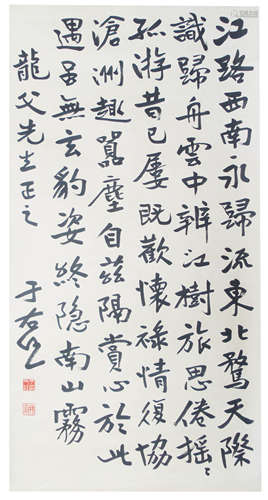 江路西南永歸流東北騖天際
識歸舟雲中辨江樹旅思倦搖〻
孤游昔已屢既歡懷祿情復協
滄洲趣囂塵自茲隔賞心於此
遇虽無玄豹姿終隐南山霧
龍父先生正之
于右任